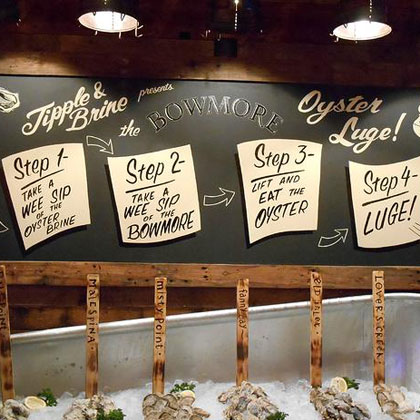 Tipple &
Brine
presents
the BOWMORE
Oyster
Luge!
Step 1-
TAKE A
WEE SIP
OF THE
OYSTER
BRINE
Step 2-
TAKE A
WEE SIP
OF THE
BOWMORE
Step 3-
LIFT AND
EAT THE
OYSTER
Step 4-
LUGE!
MALESPINA
misty point
fanny bay
LOVERS CREEK